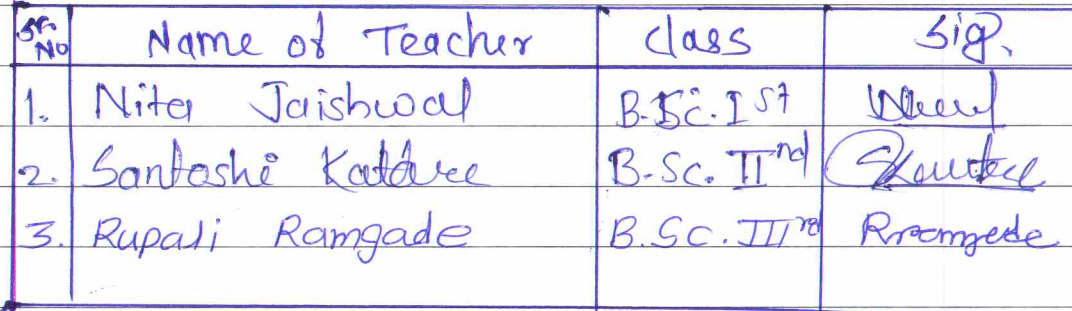 Sr. No Name of Teacher class Sig.
1. Nita Jaishwal B.Sc. I st
2. Santoshi Katare B.Sc. II nd
3. Rupali Ramgade B.Sc. III rd Rramgede